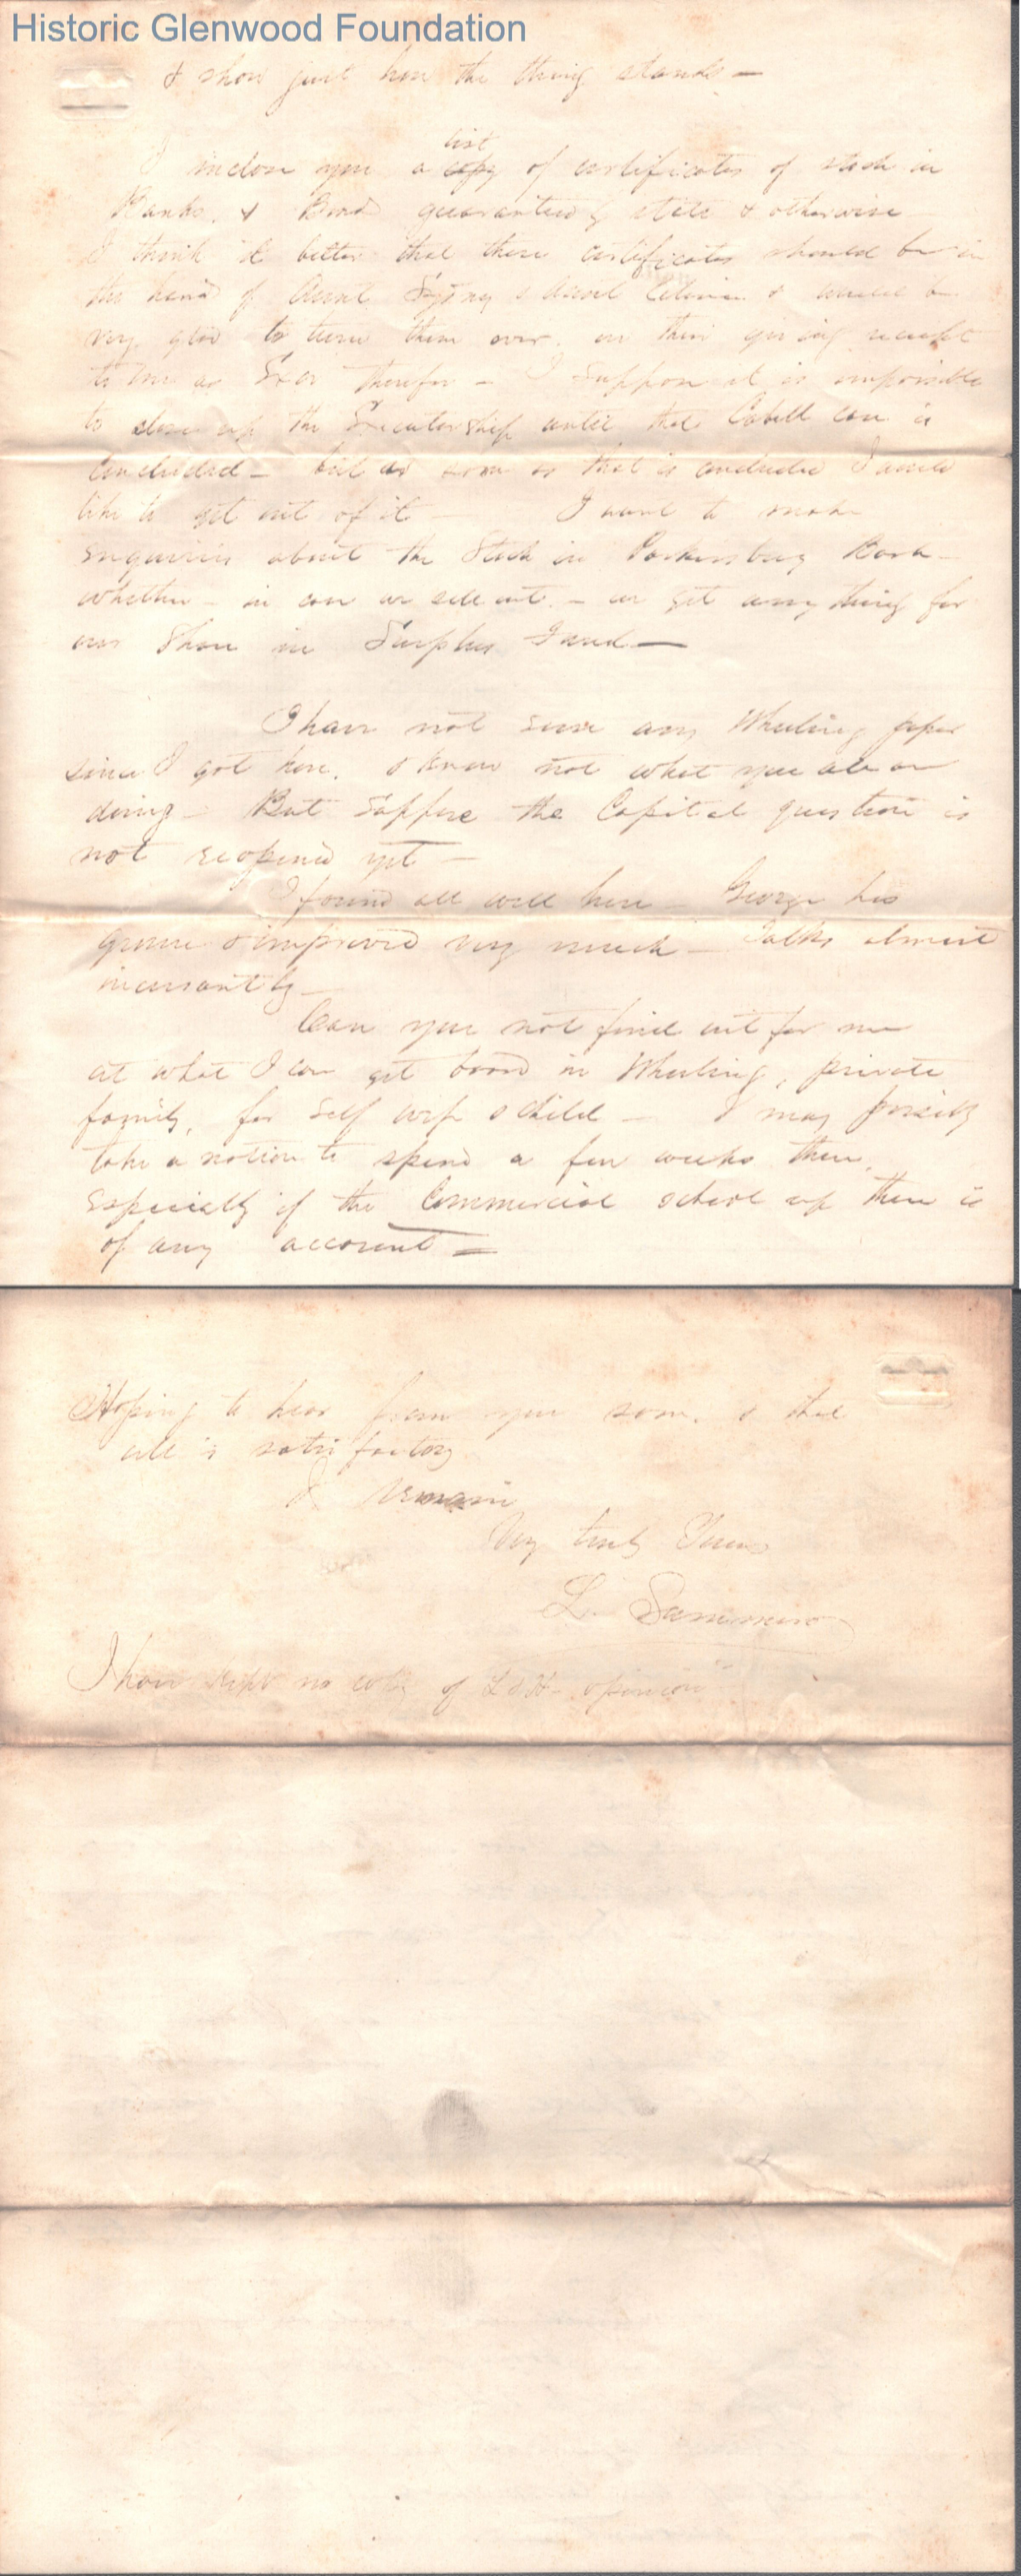 Historic Glenwood Foundation
& show just how the thing stands —
list
I inclose you a copy of certificates of stock in
Banks, & Bond guaranteed by state & otherwise
I think it better that these certificates should be in
the hand of Aunt Sydney & Aunt Celina & would be
very glad to turn them over, on their giving receipt
to me as Exor therefor — I suppose it is impossible
to close up the Executorship until that Cabell case is
concluded — but as soon as that is concluded I would
like to get out of it — I want to make
enquiries about the Stock in Parkersburg Bank
whether — in case we sell out — we get any thing for
our Share in Surplus Fund —
I have not seen any Wheeling paper
since I got here, & know not what you all are
doing — But suppose the Capital question is
not reopened yet —
I found all well here — George has
grown & improved very much — Talks almost
incessantly —
Can you not find out for me
at what I can get board in Wheeling, private
family, for self wife & child — I may possibly
take a notion to spend a few weeks there,
especially if the Commercial school up there is
of any account —
Hoping to hear from you soon, & that
all is satisfactory
I remain
Very truly Yours
L. Summers
I have kept no copy of L & H opinion